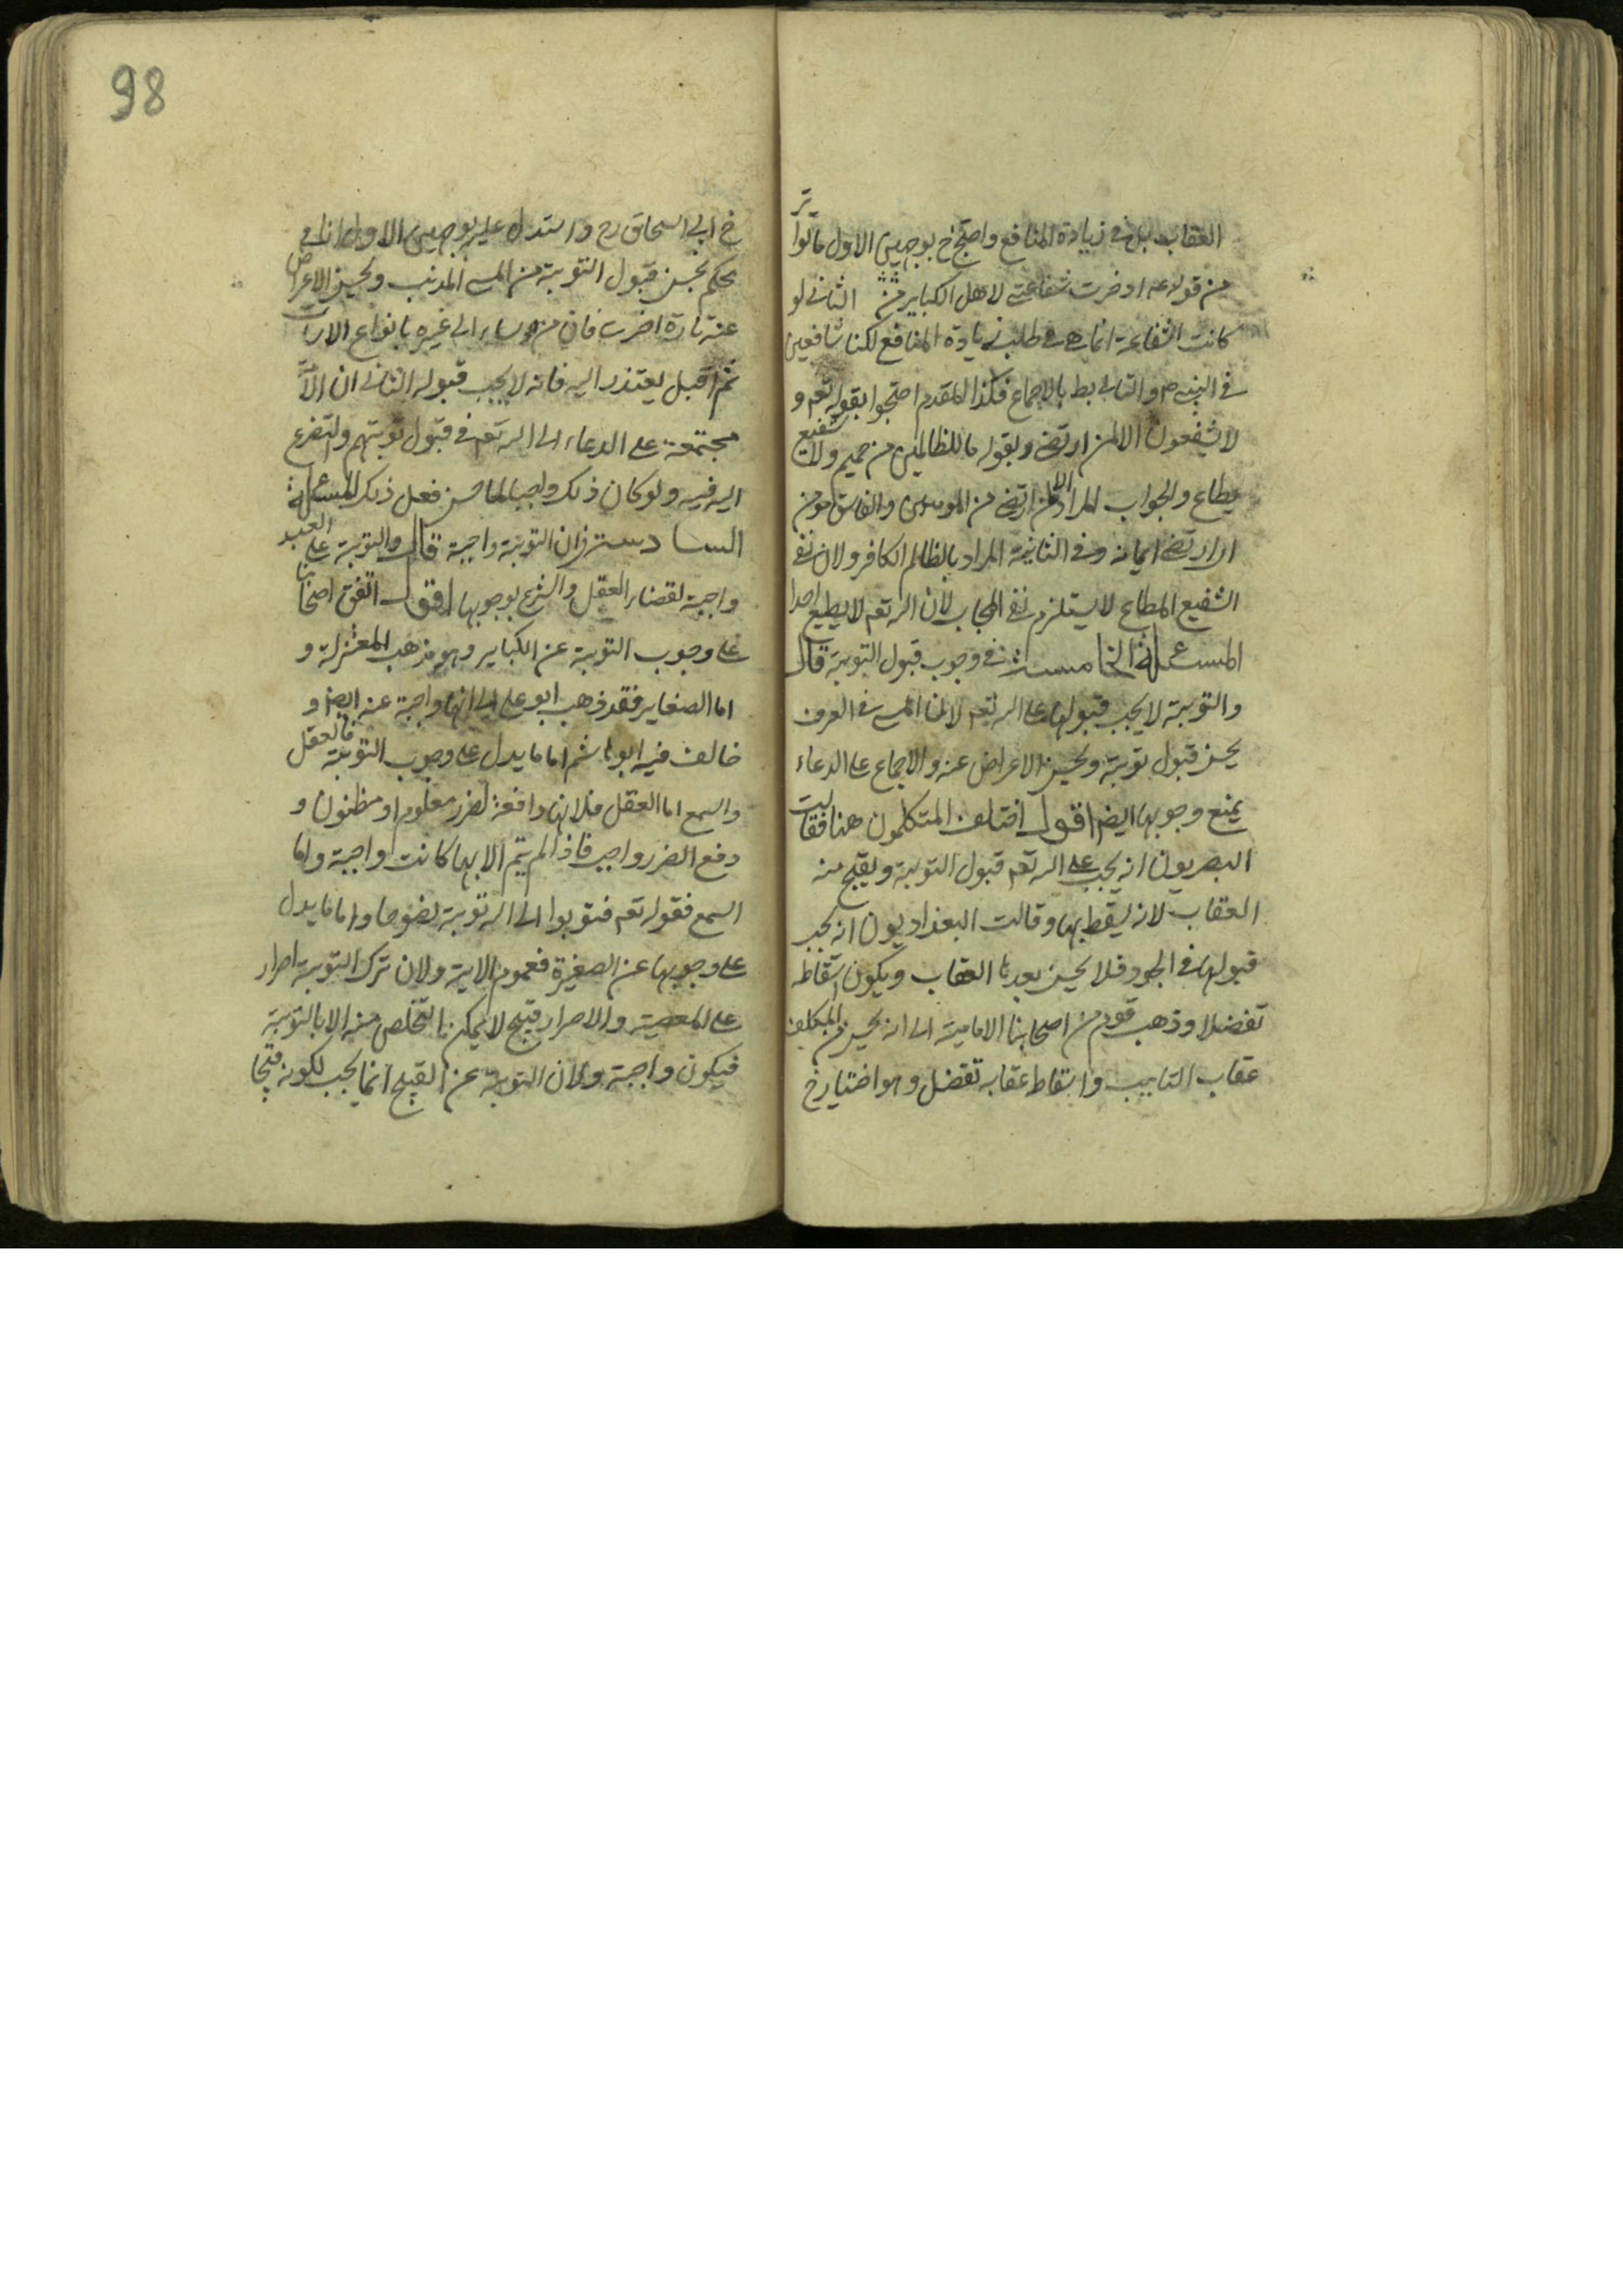 العقاب بل فى زيادة المنافع واحتج خ بوجهين الاول ما تواتر
من قوله عم ادخرت شفاعتى لاهل الكباير من الثانى لو
كانت الشفاعة انما هى فى طلب زيادة المنافع لكنا شافعين
فى النبى ص والتالى بط بالاجماع فكذا المقدم احتجوا بقوله تعم و
لا يشفعون الا لمن ارتضى وبقوله ما للظالمين من حميم ولا شفيع
يطاع والجواب المراد الا لمن ارتضى من المومنين والفاسق مومن
او ارتضى ايمانه وفى الثانية المراد بالظالم الكافر ولان نفى
الشفيع المطاع لا يستلزم نفى المجاب لان الله تعم لا يطيع احدا
المسئلة الخامسة فى وجوب قبول التوبة قال
والتوبة لا يجب قبولها على الله تعم لاننا المسى فى العرف
يحسن قبول توبته ويحسن الاعراض عنه والاجماع على الدعاء
يمنع وجوبها ايضم اقول اختلف المتكلمون هنا فقالت
البصريون انه يجب على الله تعم قبول التوبة ويقبح منه
العقاب لانه يسقط بها وقالت البغداديون انه يجب
قبولها فى الجود فلا يحسن بعدها العقاب ويكون اسقاطه
تفضلا وذهب قوم من اصحابنا الامامية الى انه يحسن من المكلف
عقاب التايب واسقاط عقابه تفضل وهو اختيار خ
98
خ ابى اسحاق رح واستدل عليه بوجهين الاول انا
نحكم بحسن قبول التوبة من المسى المذنب وبحسن الاعراض
عنه تارة اخرى فان من اساء الى غيره بانواع الاسات
ثم اقبل يعتذر اليه فانه لا يجب قبوله الثانى ان الامة
مجتمعة على الدعاء الى الله تعم فى قبول توبتهم والتضرع
اليه فيه ولو كان ذلك واجبا لما حسن فعل ذلك المسئلة
السادسة فى ان التوبة واجبة قال والتوبة على العبد
واجبة لقضاء العقل والشرع بوجوبها اقول اتفق اصحابنا
على وجوب التوبة عن الكباير وهو مذهب المعتزلة و
اما الصغاير فقد ذهب ابو على الى انها واجبة عنه ايضا و
خالف فيه ابو هاشم اما ما يدل على وجوب التوبة فالعقل
والسمع اما العقل فلانها دافعة لضرر معلوم او مظنون و
دفع الضرر واجب فاذا لم يتم الا بها كانت واجبة واما
السمع فقوله تعم فتوبوا الى الله توبة نصوحا واما ما يدل
على وجوبها عن الصغيرة فعموم الاية ولان ترك التوبة اصرار
على المعصية والاصرار قبيح لا يمكن التخلص منه الا بالتوبة
فيكون واجبة ولان التوبة عن القبيح انما يجب لكونه قبيحا